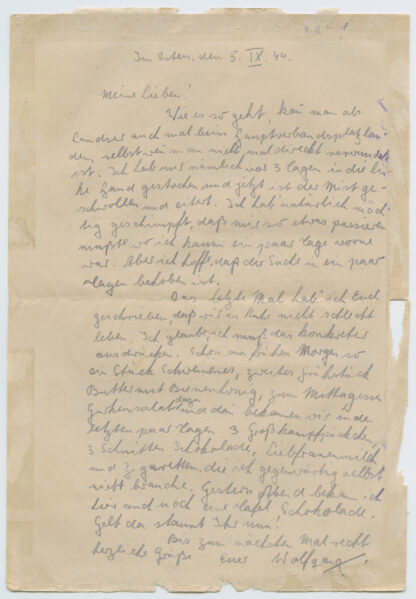 Im Osten, den 5. IX. 44.
Meine Lieben!
Wie es so geht, kan man als
Landser auch mal beim Hauptverbandsplatz lan-
den, selbst wenn man nicht mal direkt verwundet
ist. Ich hab mir nämlich vor 3 Tagen in die lin-
ke Hand gestochen und jetzt ist der Mist ge-
schwollen und eitert. Ich hab natürlich mäch-
tig geschimpft, daß mir so etwas passieren
mußte, wo ich kaum ein paar Tage vorne
war. Aber ich hoff, daß die Sache in ein paar
Tagen behoben ist.
Das letzte Mal hab' ich Euch
geschrieben, daß wir in Ruhe nicht schlecht
leben. Ich glaub, ich muß das konkreter
ausdrücken. Schon am frühen Morgen so
ein Stück Schweinernes, zweites Frühstück
Butter mit Bienenhonig, zum Mittagessen
Gurkensalat und dazu bekamen wir in den
letzten paar Tagen 3 Großkampfpäckchen,
3 Schnitten Schokolade, Liebfrauenmilch
und Zigaretten, die ich gegenwärtig selbst
nicht brauche. Gestern Abend bekam ich
hier auch noch eine Tafel Schokolade.
Gelt da staunt Ihr nun!
Bis zum nächsten Mal recht
herzliche Grüße Euer Wolfgang.